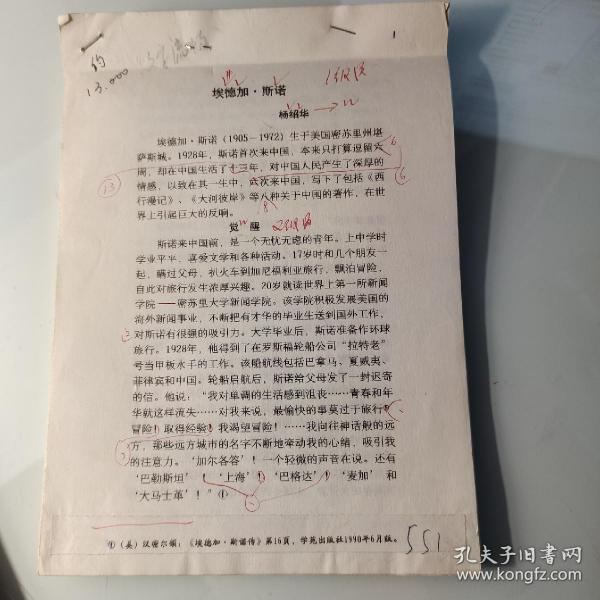 约
13.000
1
埃德加·斯诺
杨绍华
埃德加·斯诺（1905－1972）生于美国密苏里州堪
萨斯城。1928年，斯诺首次来中国，本来只打算逗留六
周，却在中国生活了十三年，对中国人民产生了深厚的
情感，以致在其一生中，六次来中国，写下了包括《西
行漫记》、《大河彼岸》等八种关于中国的著作，在世
界上引起巨大的反响。
觉醒
斯诺来中国前，是一个无忧无虑的青年。上中学时
学业平平，喜爱文学和各种活动。17岁时和几个朋友一
起，瞒过父母，扒火车到加尼福利亚旅行，飘泊冒险，
自此对旅行发生浓厚兴趣。20岁就读世界上第一所新闻
学院——密苏里大学新闻学院。该学院积极发展美国的
海外新闻事业，不断把有才华的毕业生送到国外工作，
对斯诺有很强的吸引力。大学毕业后，斯诺准备作环球
旅行。1928年，他得到了在罗斯福轮船公司“拉特老”
号当甲板水手的工作。该船航线包括巴拿马、夏威夷、
菲律宾和中国。轮船启航后，斯诺给父母发了一封迟寄
的信。他说：“我对单调的生活感到沮丧……青春和年
华就这样流失……对我来说，最愉快的事莫过于旅行！
冒险！取得经验！我渴望冒险！……我向往神话般的远
方，那些远方城市的名字不断地牵动我的心绪，吸引我
的注意力。‘加尔各答’！一个轻微的声音在说。还有
‘巴勒斯坦’！‘上海’！‘巴格达’！‘麦加’和
‘大马士革’！”①
①（美）汉密尔顿：《埃德加·斯诺传》第16页，学苑出版社1990年6月版。
551
孔夫子旧书网
www.kongfz.com